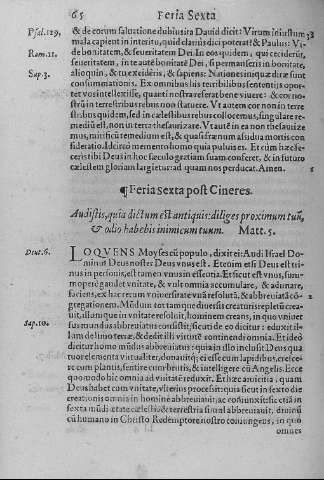 65 Feria Sexta
Psal.129. & de eorum saluatione dubius ita Dauid dicit: Virum iniustum
mala capient in interitu, quid clarius dici poterat? & Paulus: Vi-
Rom.11. de bonitatem, & seueritatem Dei. In eos quidem, qui ceciderũt,
seueritatem, in te autẽ bonitatẽ Dei, si permanseris in bonitate,
Sap.3. alioquin, & tu excideris, & sapiens: Nationes iniquæ diræ sunt
consummationis. Ex omnibus his terribilibus sententiis opor-
tet vos intellexisse, quanti nostra referat bene viuere: & cor no-
strũ in terrestribus rebus non statuere. Vt autem cor non in terre
stribus quidem, sed in cælestibus rebus collocemus, singulare re-
mediũ est, non in terra thesaurizare. Vt autẽ in ea non thesaurize
mus, mirificũ remedium est, & quasi frænum assidua mortis con-
sideratio. Ideirò memento homo quia puluis es. Et cùm hæc fe-
ceristibi Deus in hoc sæculo gratiam suam conferet, & in futuro
cælestem gloriam largietur ad quam nos perducat. Amen.
¶ Feria sexta post Cineres.
Audistis, quia dictum est antiquis: diliges proximum tuũ,
& odio habebis inimicum tuum. Matt. 5.
Deut.6. LOQVENS Moyses cũ populo, dixit ei: Audi Israel Do-
minus Deus noster Deus vnus est. Etenim etsi Deus est tri-
nus in personis, est tamen vnus in essentia. Et sicut est vnus, sum-
mopere gaudet vnitate, & vult omnia accumulare, & adunare,
faciens, ex hac rerum vniuersitate vna resoluit, & abbreuiatã con- 2
gregationem. Mũdum tot tamque diuersis creaturis repletũ crea-
uit, illum que in vnitate resoluit, hominem creans, in quo vniuer
Sap.10. sus mundus abbreuiatus consistit, sicuti de eo dicitur: eduxit il-
lum de limo terræ, & dedit illi virtutẽ continendi omnia. Et ideò
dicitur homo mũdus abbreuiatus: quia in illo inclusit Deus qua
tuor elementa virtualiter, donauitq; ei esse cum lapidibus, cresce-
re cum plantis, sentire cum brutis, & intelligere cũ Angelis. Ecce
quo modo hic omnia ad vnitatẽ reduxit. Et hæc amicitia, quam
Deus habet cum vnitate, vlterius processit: quia sicut in sexto die
creationis omnia in homine abbreuiauit, ac coniunxit: sic etiã in
sexta mũdi ætate cælestia, & terrestria simul abbreuiauit, diuinũ
cũ humano in Christo Redemptore nostro coniungens, in quo
omnes